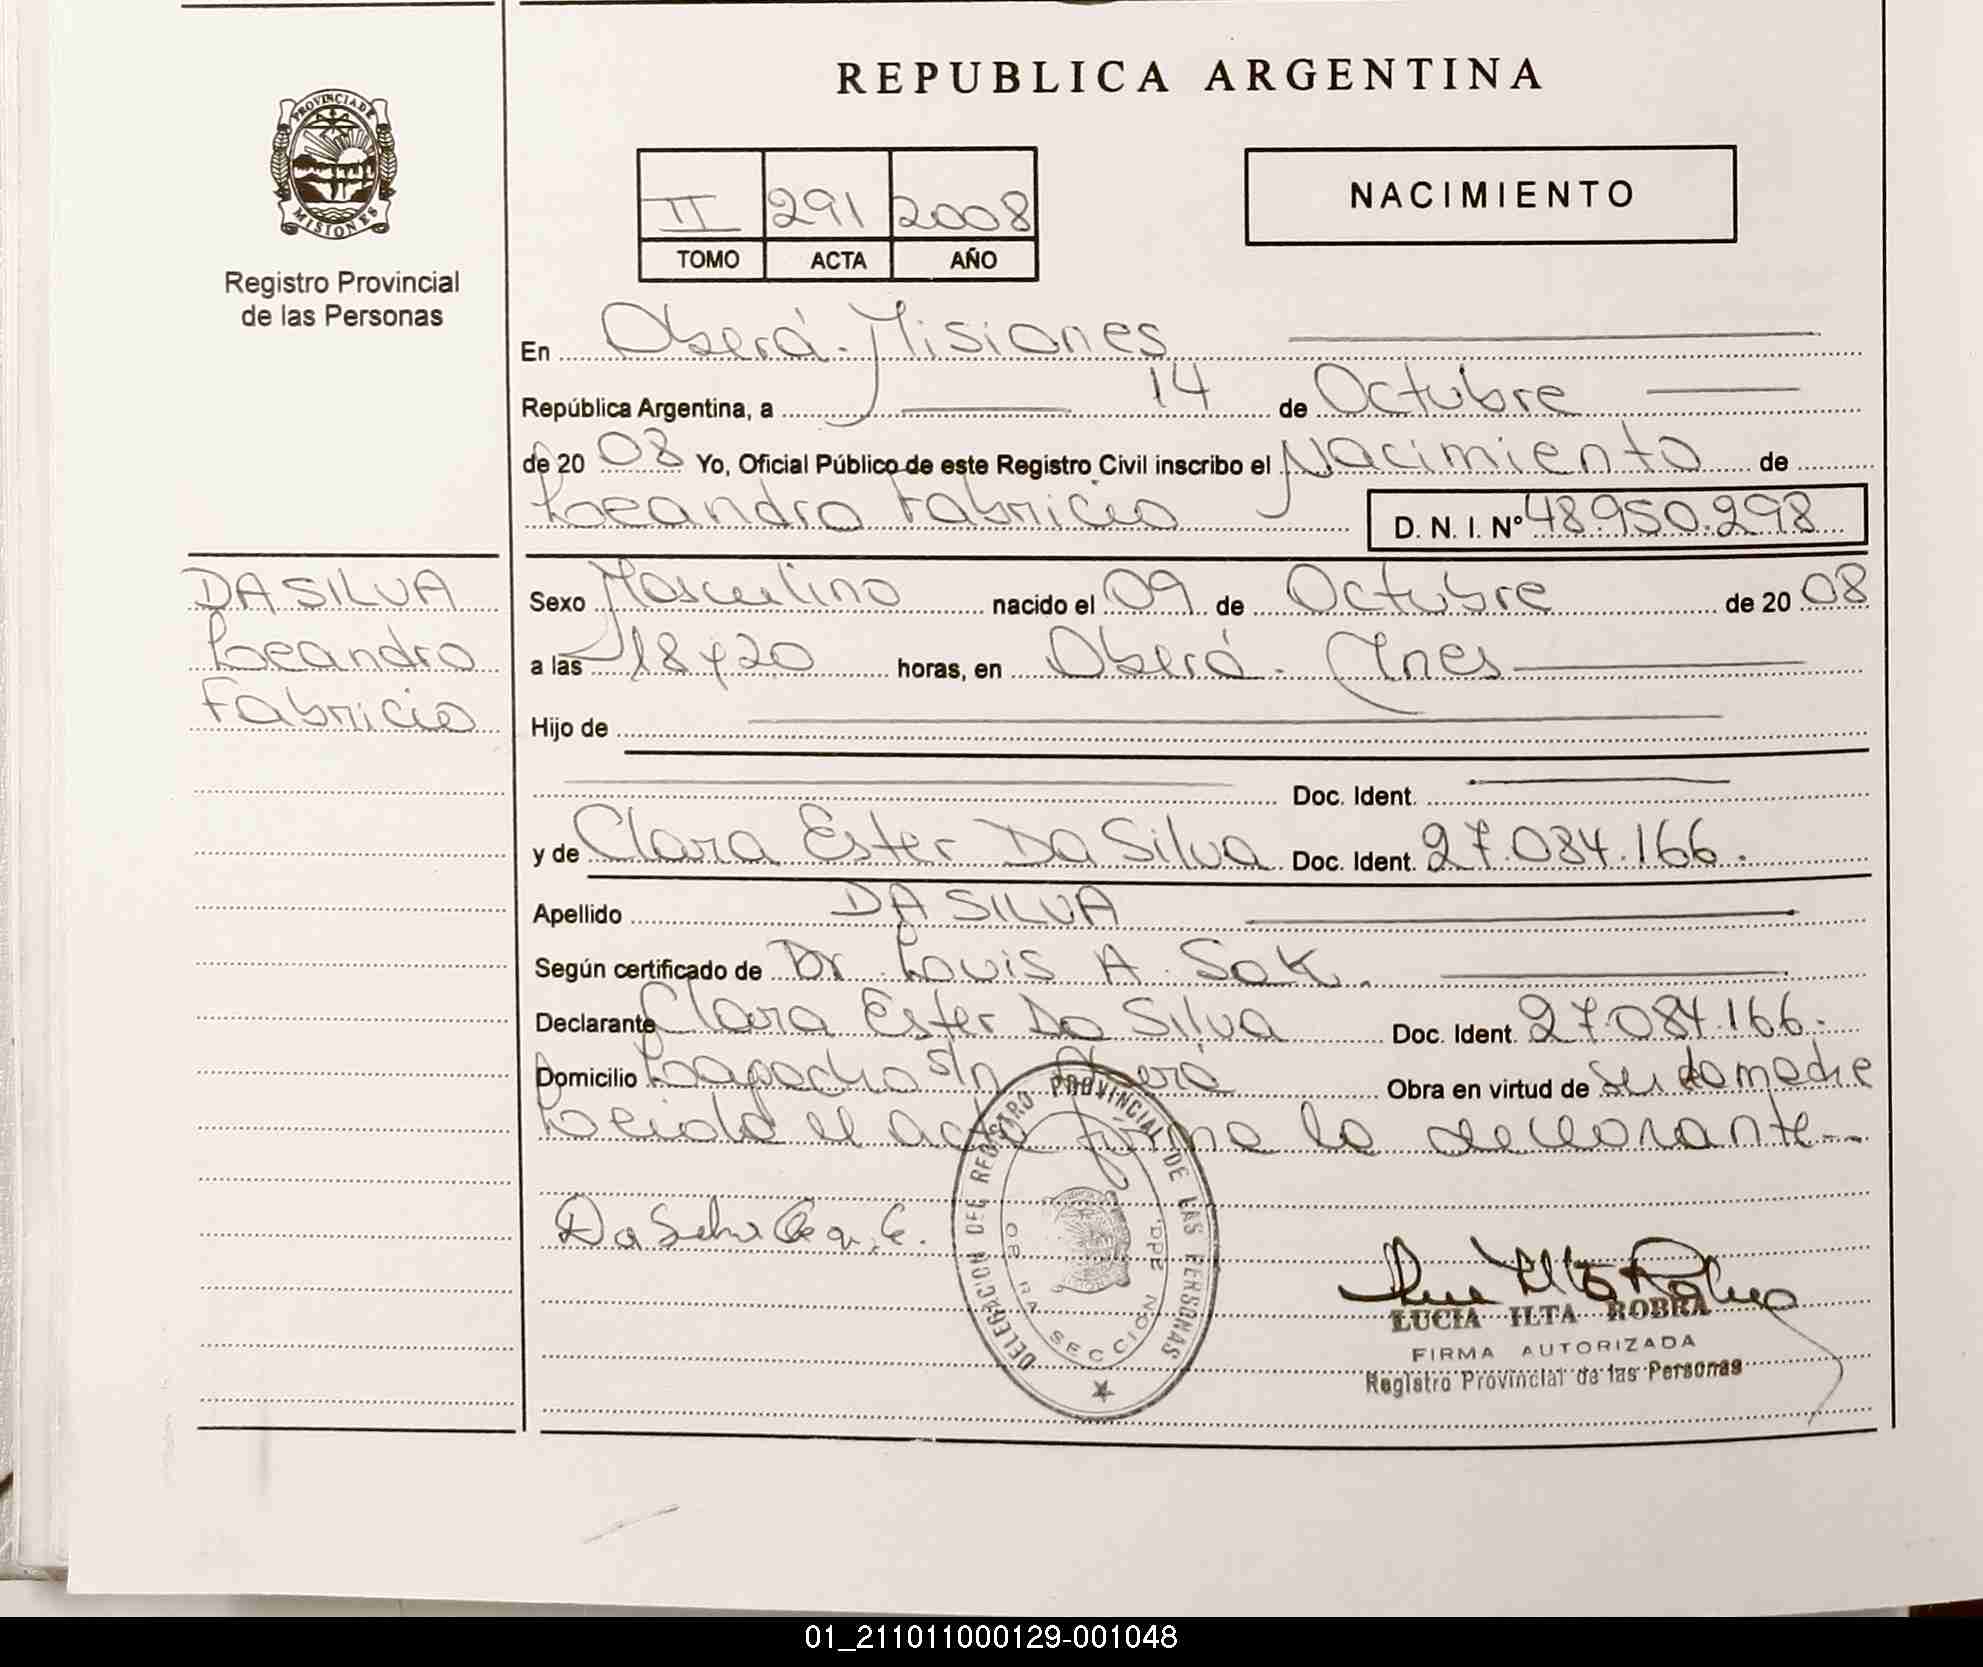 REPUBLICA ARGENTINA
PROVINCIA DE MISIONES
Registro Provincial
de las Personas
II 291 2008
TOMO ACTA AÑO
NACIMIENTO
En Oberá - Misiones
República Argentina, a 14 de Octubre
de 20 08 Yo, Oficial Público de este Registro Civil inscribo el Nacimiento de
Leandro Fabricio D. N. I. Nº 48.950.298
DA SILVA
Leandro
Fabricio
Sexo Masculino nacido el 09 de Octubre de 20 08
a las 18 y 20 horas, en Oberá - Mnes
Hijo de
Doc. Ident.
y de Clara Ester Da Silva Doc. Ident. 27.084.166.
Apellido DA SILVA
Según certificado de Dr. Louis A. Sak.
Declarante Clara Ester Da Silva Doc. Ident. 27.084.166.
Domicilio Lapacho s/n Oberá Obra en virtud de ser la madre
Leida el acta firma la declarante--
DELEGACION DEL REGISTRO PROVINCIAL DE LAS PERSONAS
SECCION
LUCIA ILTA ROBRA
FIRMA AUTORIZADA
Registro Provincial de las Personas
01_211011000129-001048